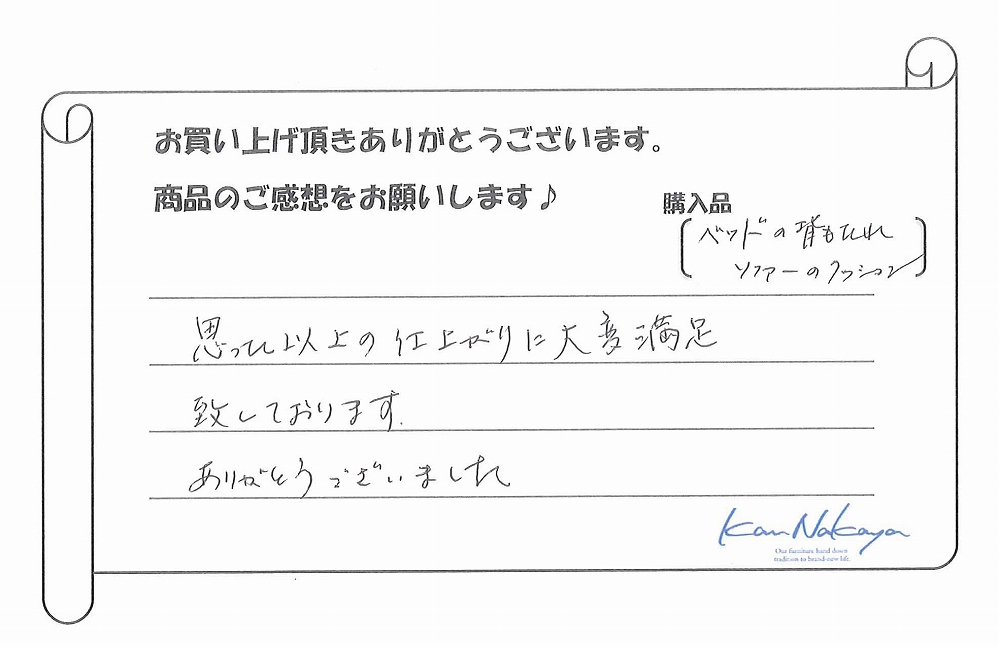 お買い上げ頂きありがとうございます。
商品のご感想をお願いします♪
購入品
ベッドの背もたれ
ソファーのクッション
思った以上の仕上がりに大変満足
致しております.
ありがとうございました
Kan Nakaya
Our furniture hand down
tradition to brand-new life.